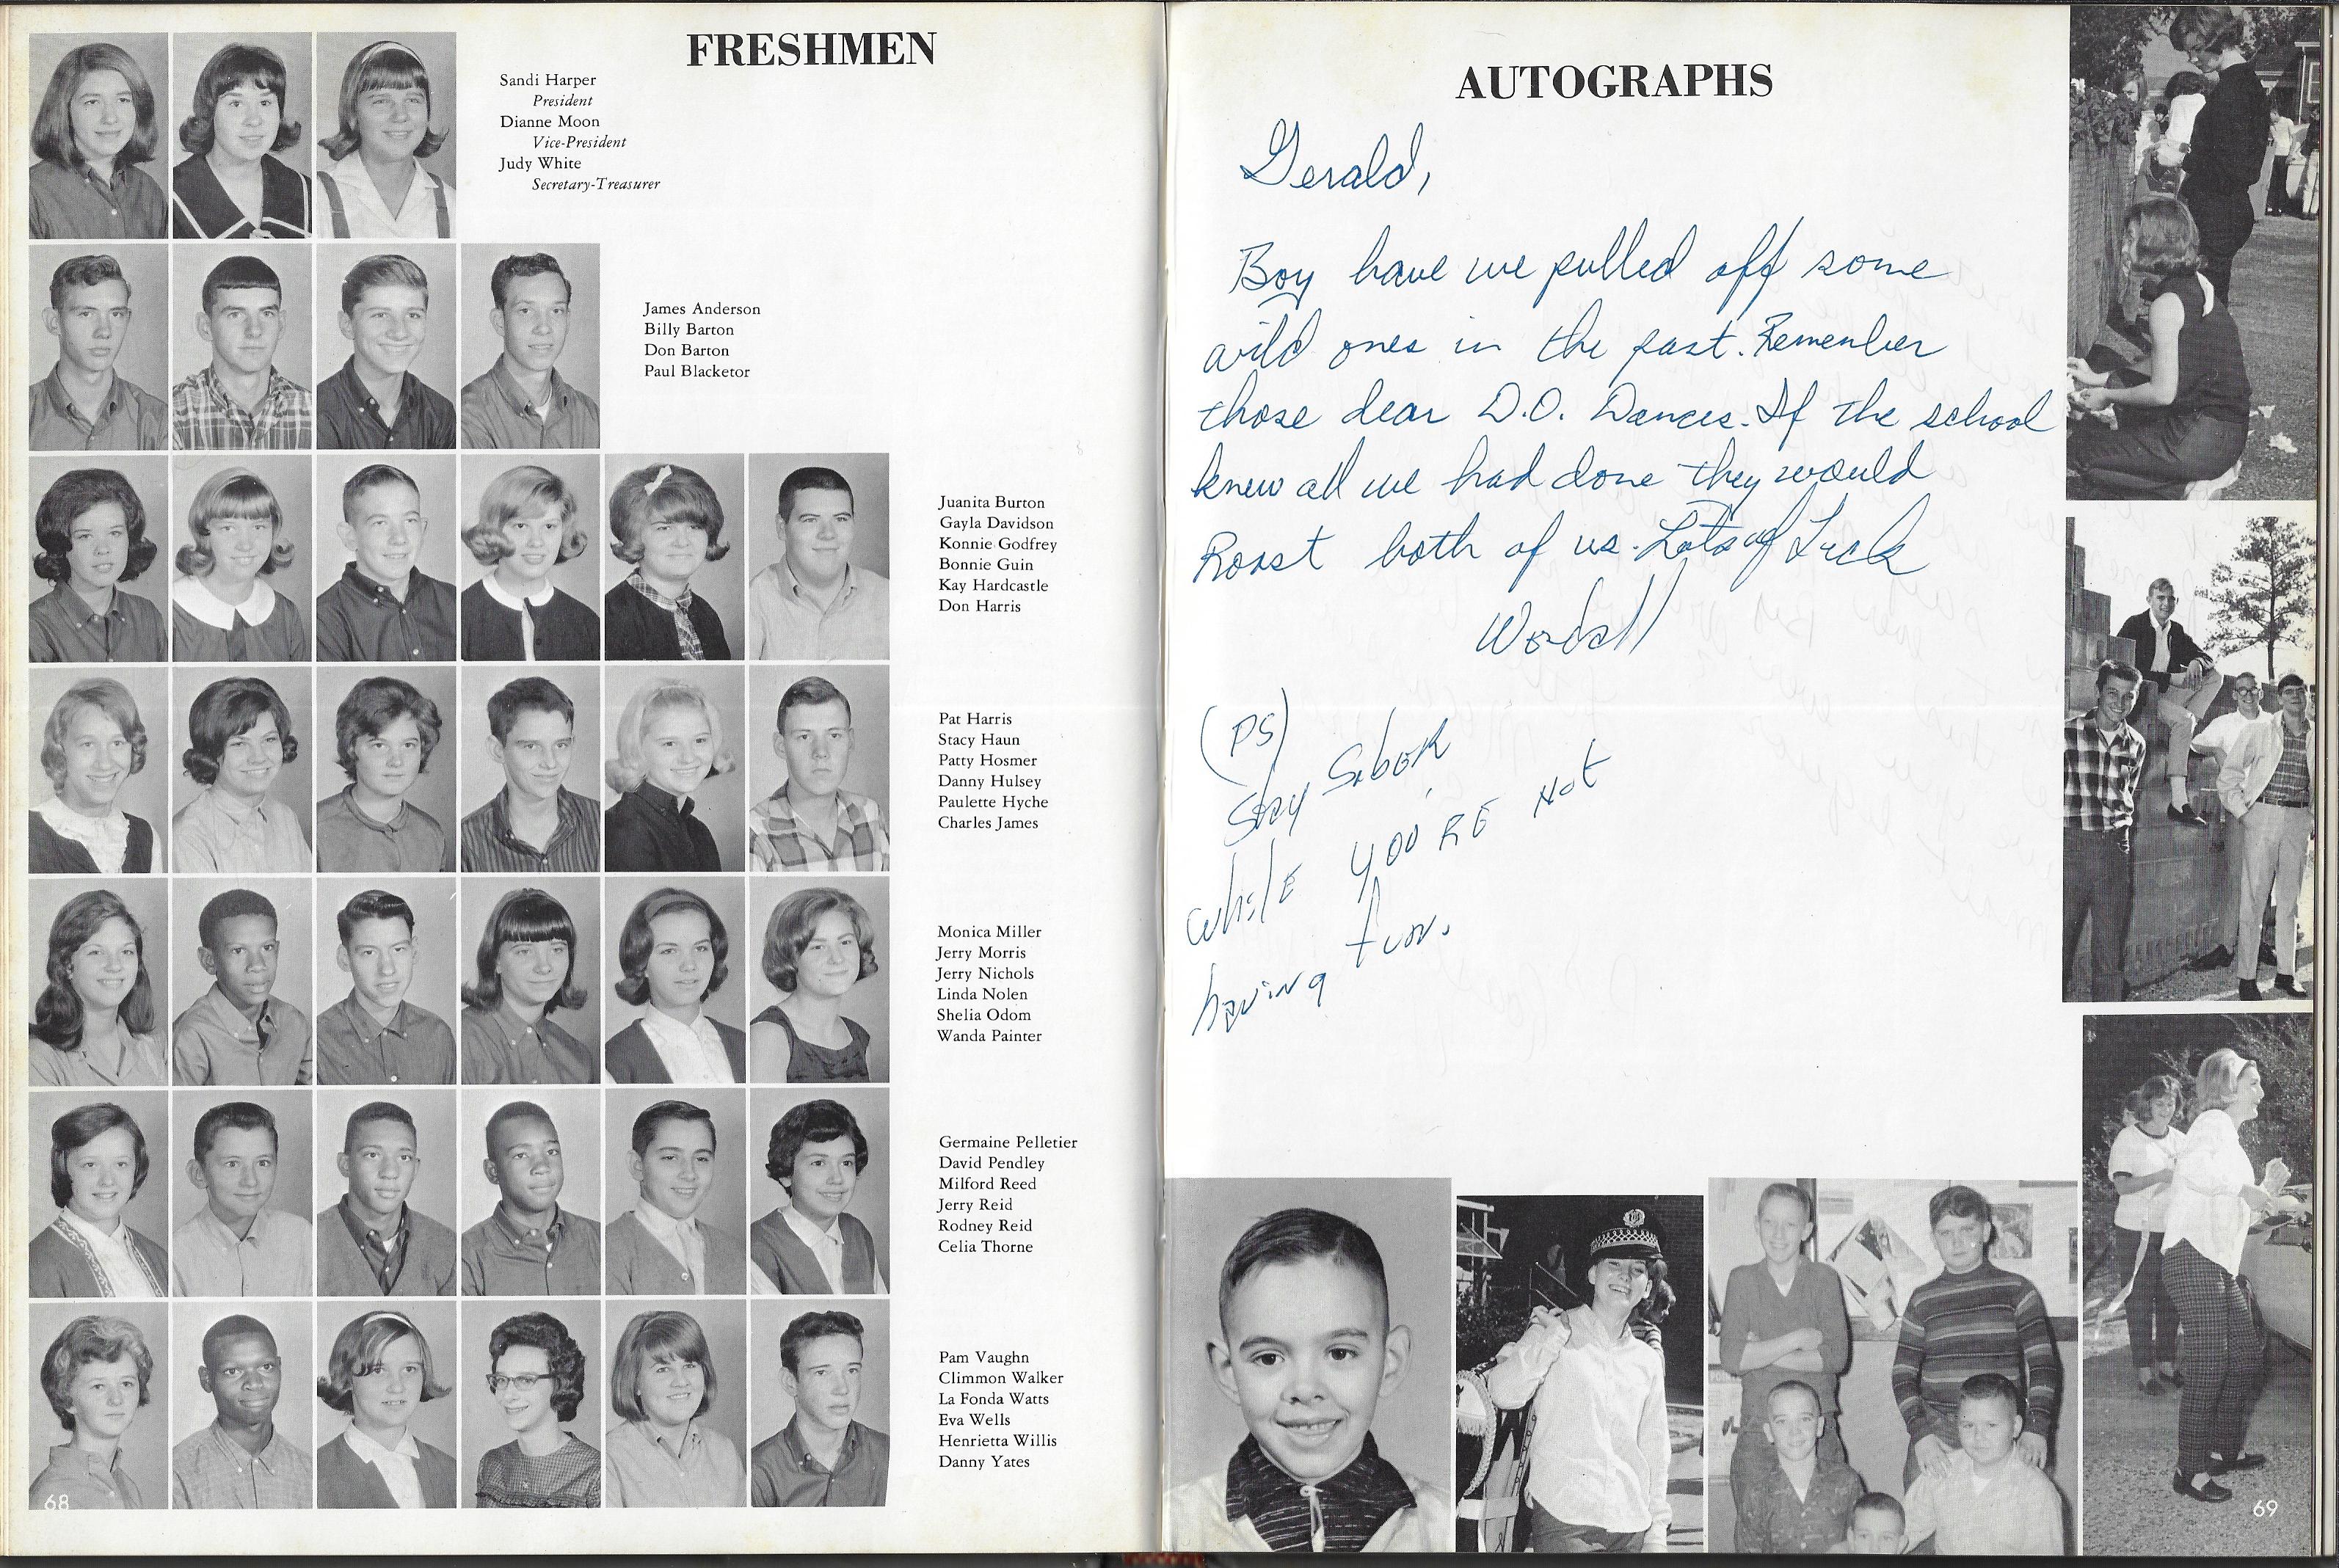 FRESHMEN
Sandi Harper
President
Dianne Moon
Vice-President
Judy White
Secretary-Treasurer
James Anderson
Billy Barton
Don Barton
Paul Blacketor
Juanita Burton
Gayla Davidson
Konnie Godfrey
Bonnie Guin
Kay Hardcastle
Don Harris
Pat Harris
Stacy Haun
Patty Hosmer
Danny Hulsey
Paulette Hyche
Charles James
Monica Miller
Jerry Morris
Jerry Nichols
Linda Nolen
Shelia Odom
Wanda Painter
Germaine Pelletier
David Pendley
Milford Reed
Jerry Reid
Rodney Reid
Celia Thorne
Pam Vaughn
Climmon Walker
La Fonda Watts
Eva Wells
Henrietta Willis
Danny Yates
68
AUTOGRAPHS
Gerald,
Boy have we pulled off some
wild ones in the past. Remember
those dear D.O. Dances. If the school
knew all we had done they would
Roast both of us. Lots of Luck
(PS)
Stay Sober
while you're not
having fun.
69